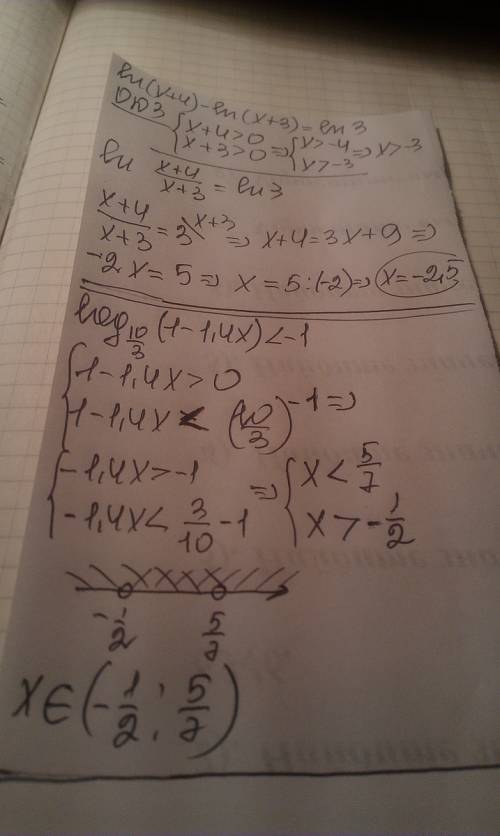 ln(x+4)-ln(x+3)=ln 3
ОДЗ {x+4>0 x+3>0 => {x>-4 x>-3 => x>-3
ln (x+4)/(x+3) = ln 3
(x+4)/(x+3) = 3 \x+3 => x+4=3x+9 =>
-2x=5 => x=5:(-2) => x=-2,5
log_{10/3} (1-1,4x)<-1
{1-1,4x>0
1-1,4x<(10/3)^{-1} =>
{-1,4x>-1
-1,4x<3/10-1 => {x<5/7 x>-1/2
-1/2 5/7
x∈(-1/2; 5/7)